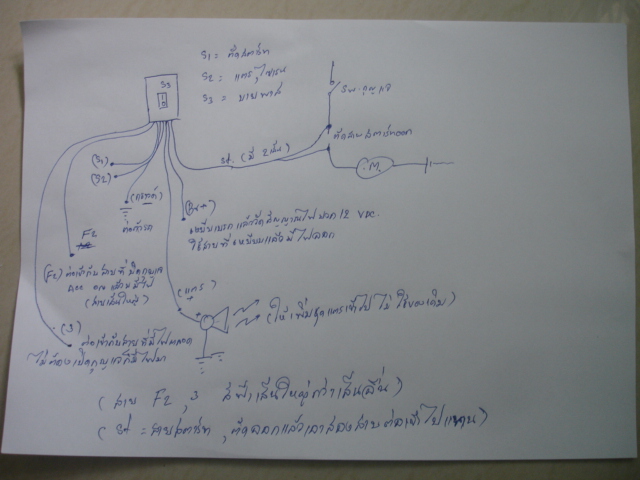 S1 = ตัดสตาร์ท
S2 = แตร, ไซเรน
S3 = บายพาส
S3
SW. กุญแจ
ตัดสายสตาร์ทออก
M
St. (มี 2 เส้น)
(S1)
(S2)
(กราวด์)
ต่อตัวรถ
(Br+)
เหยียบเบรค แล้ววัดสัญญาณไฟบวก 12 VDC.
ใช้สายที่เหยียบแล้วมีไฟออก
F2
(F2) ต่อเข้ากับสายที่บิดกุญแจ
ACC ON แล้วมีไฟ
(สายเส้นใหญ่)
(แตร)
(ให้เพิ่มชุดแตรเข้าไป ไม่ใช้ของเดิม)
(3)
ต่อเข้ากับสายที่มีไฟตลอด
ไม่ต้องเปิดกุญแจก็มีไฟมา
(สาย F2, 3 สีฟ้าเส้นใหญ่กว่าเส้นอื่น)
(St = สายสตาร์ท, ตัดออกแล้วเอาสองสายต่อเข้าไปแทน)